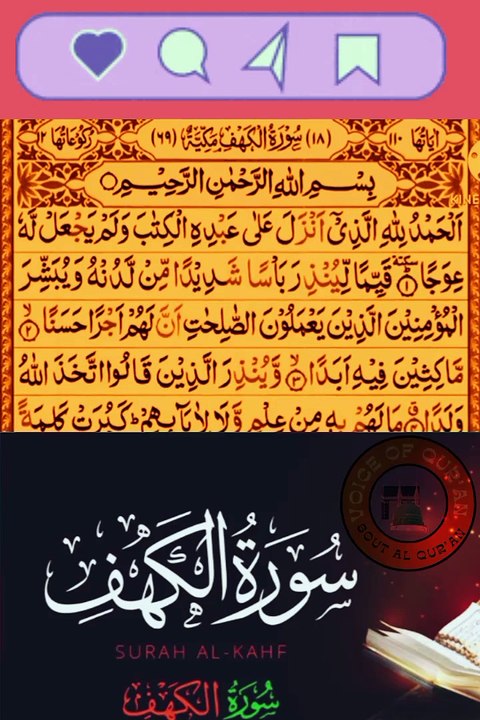 اٰیاتھا ۱۱۰ (۱۸) سُوْرَۃُ الْکَھْفِ مَکِّیَّۃٌ (۶۹) رُکُوْعَاتُھَا ۱۲
بِسْمِ اللّٰهِ الرَّحْمٰنِ الرَّحِیْمِ
KINE
اَلْحَمْدُ لِلّٰهِ الَّذِیْۤ اَنْزَلَ عَلٰی عَبْدِهِ الْکِتٰبَ وَلَمْ یَجْعَلْ لَّهٗ
عِوَجًا ۱ قَیِّمًا لِّیُنْذِرَ بَاْسًا شَدِیْدًا مِّنْ لَّدُنْهُ وَیُبَشِّرَ
الْمُؤْمِنِیْنَ الَّذِیْنَ یَعْمَلُوْنَ الصّٰلِحٰتِ اَنَّ لَهُمْ اَجْرًا حَسَنًا ۲
مَّاکِثِیْنَ فِیْهِ اَبَدًا ۳ وَّیُنْذِرَ الَّذِیْنَ قَالُوا اتَّخَذَ اللّٰهُ
وَلَدًا مَا لَهُمْ بِهٖ مِنْ عِلْمٍ وَّلَا لِاٰبَآىِٕهِمْ کَبُرَتْ کَلِمَةً
VOICE OF QUR'AN
SOUT AL QUR'AN
سُورَةُ الْكَهْفِ
SURAH AL-KAHF
سُورَةُ الْكَهْفِ